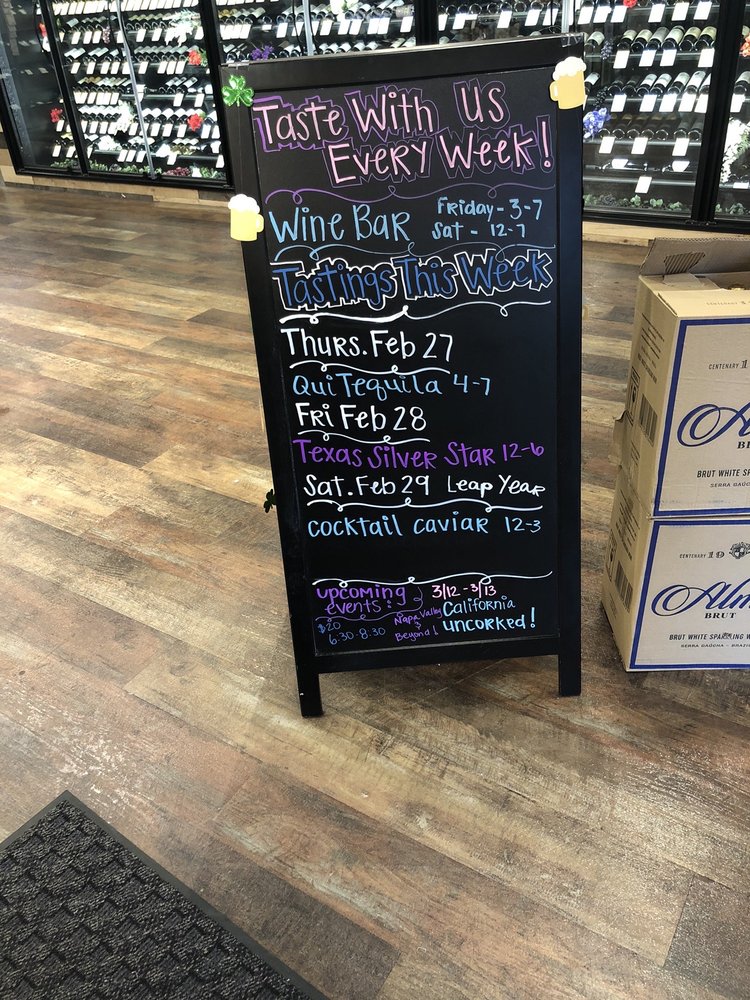 Taste With US
Every Week!
Wine Bar
Friday - 3-7
Sat - 12-7
Tastings This Week
Thurs. Feb 27
Qui Tequila 4-7
Fri Feb 28
Texas Silver Star 12-6
Sat. Feb 29 Leap Year
cocktail caviar 12-3
upcoming
events:
$20
6:30-8:30
3/12 - 3/13
Napa Valley
Beyond!
California
uncorked!
CENTENARY 1
BRUT WHITE SP
SERRA GAÚCHA
CENTENARY 19
Alm
BRUT
BRUT WHITE SPARKLING W
SERRA GAÚCHA - BRAZI